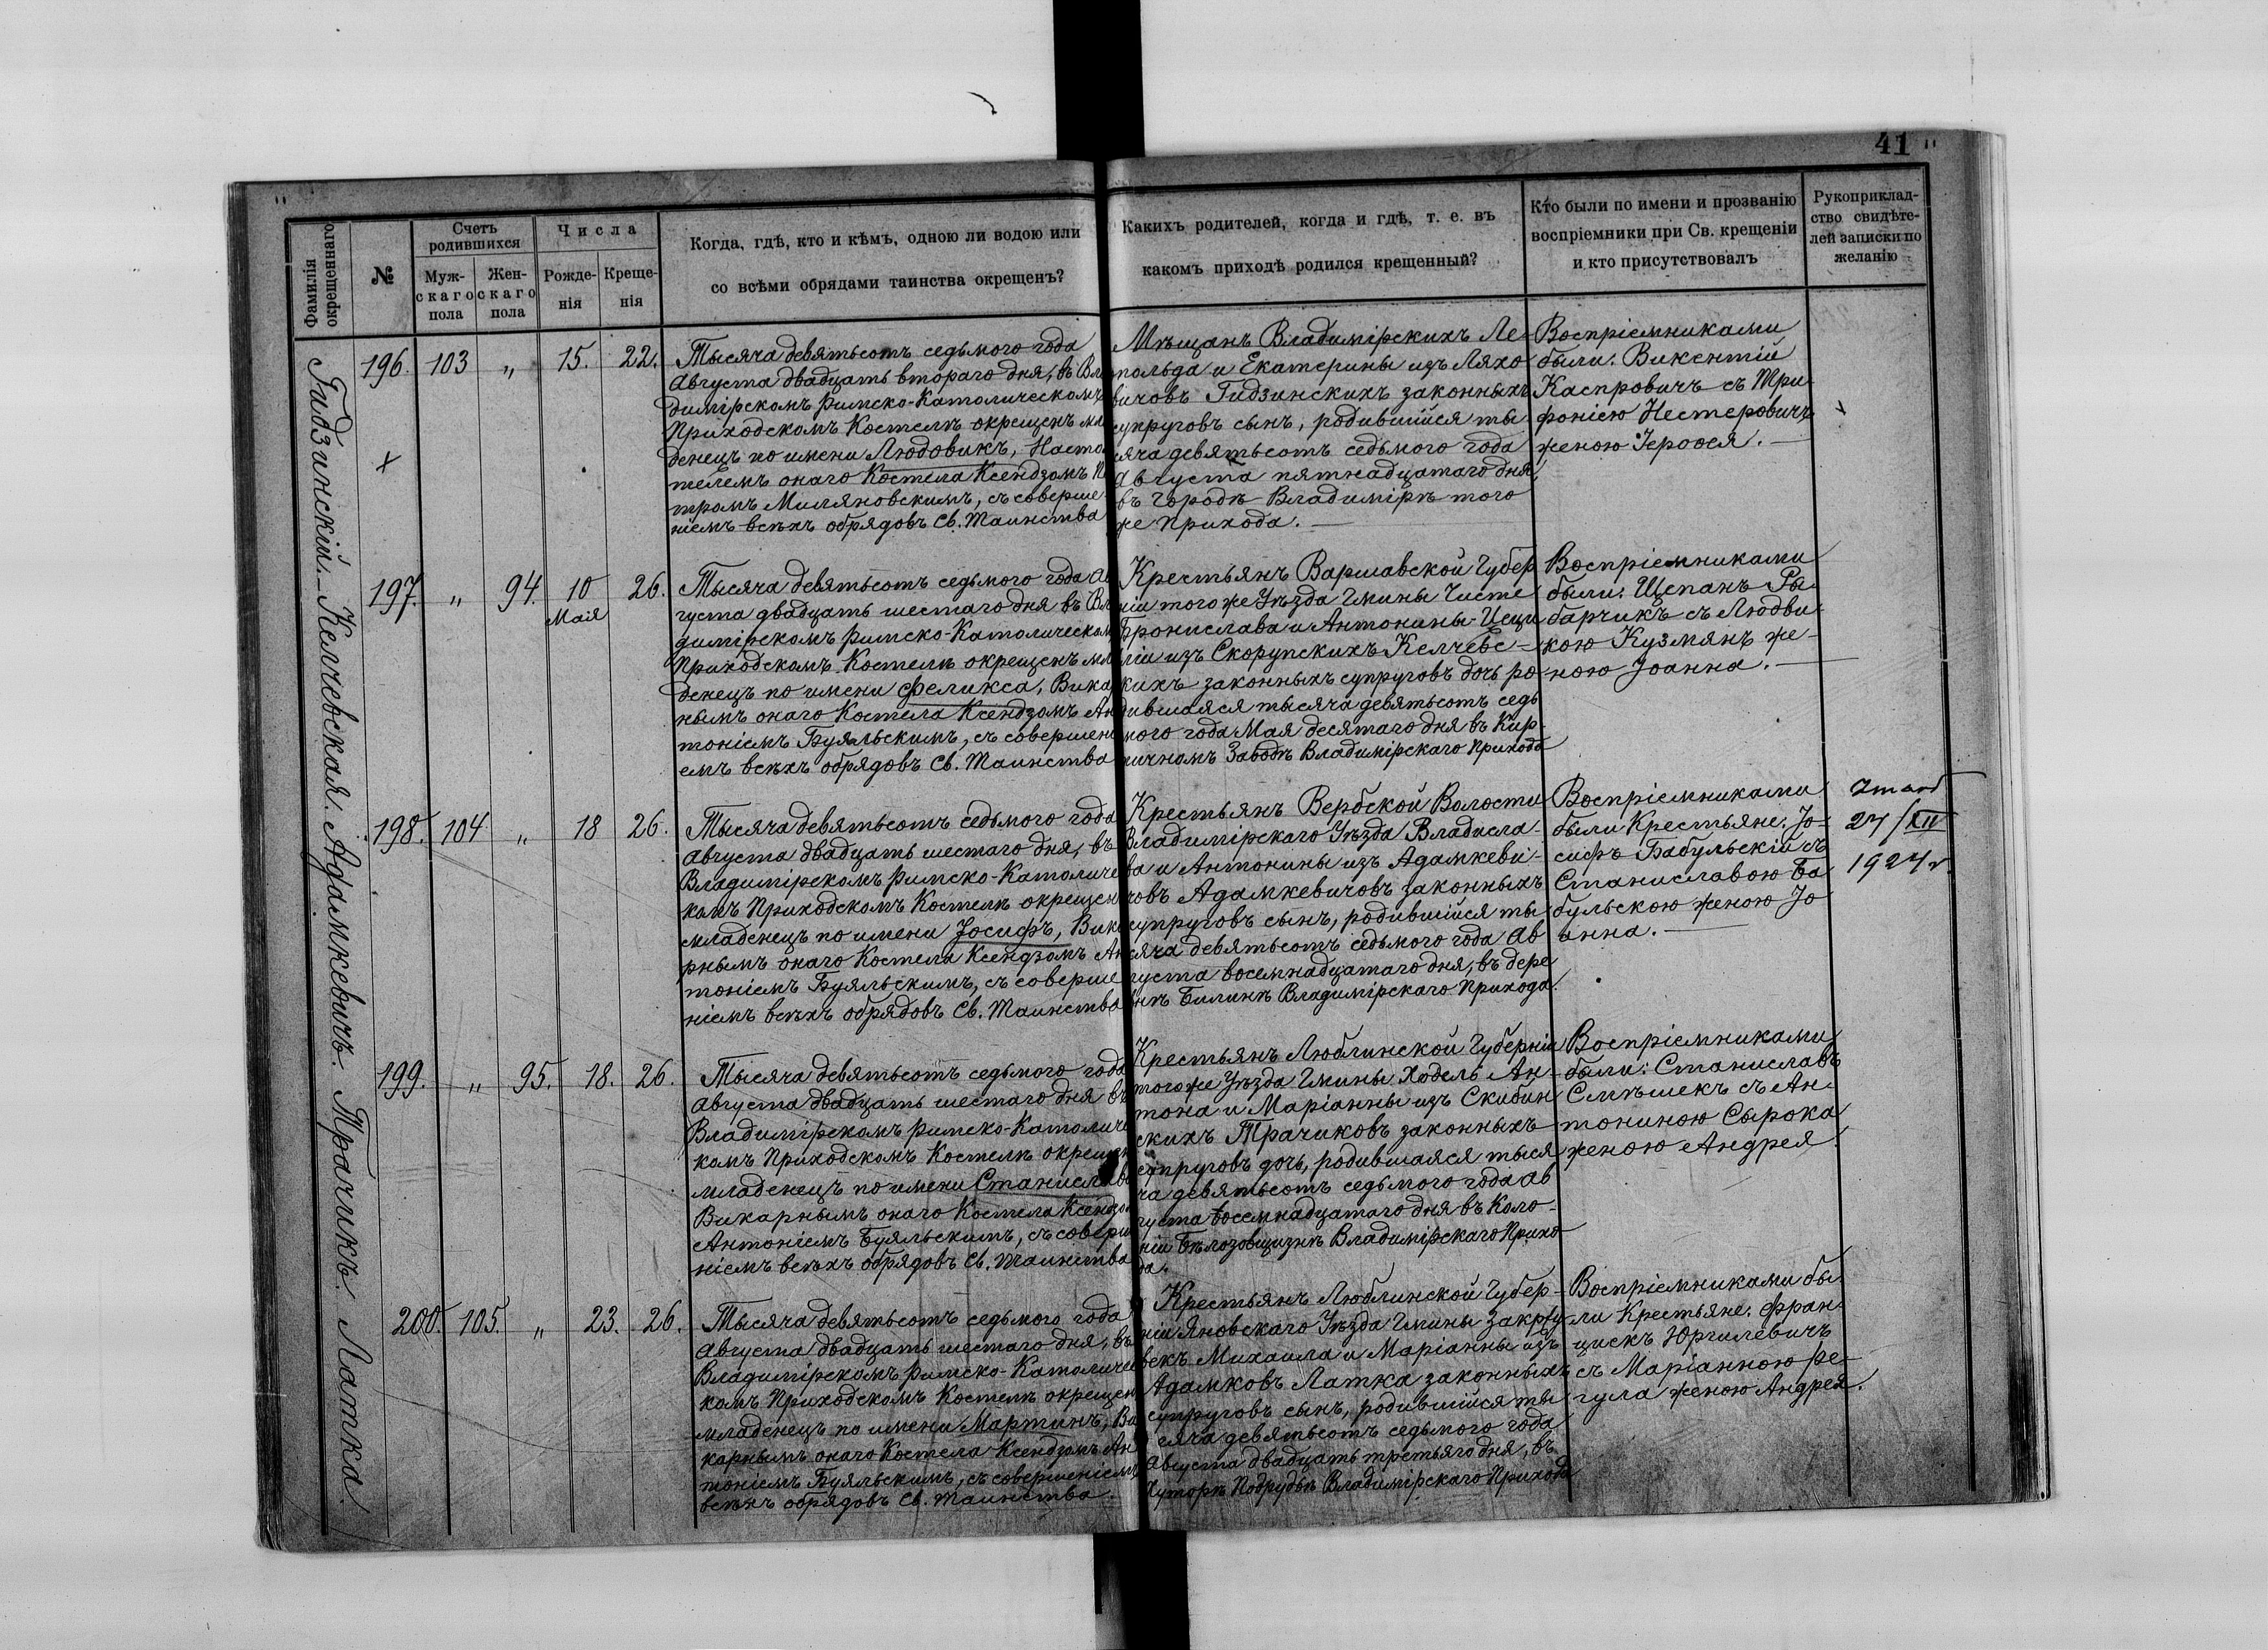 41
Фамилія окрещеннаго
№
Счетъ родившихся
Муж-скаго пола
Жен-скаго пола
Числа
Рожде-нія
Креще-нія
Когда, гдѣ, кто и кѣмъ, одною ли водою или
со всѣми обрядами таинства окрещенъ?
Какихъ родителей, когда и гдѣ, т. е. въ
какомъ приходѣ родился крещенный?
Кто были по имени и прозванію
воспріемники при Св. крещеніи
и кто присутствовалъ
Рукоприклад-
ство свидѣте-
лей записки по
желанію
Гидзинскій. – Келчевская. Адамкевичъ. Трачикъ. Латка.
196. 103 „ 15. 22.
Тысяча девятьсотъ седьмого года
Августа двадцать втораго дня, въ Вла
димірскомъ Римско-Католическомъ
Приходскомъ Костелѣ окрещенъ мла
денецъ по имени Людовикъ, Насто
телемъ онаго Костела Ксендзомъ П
тромъ Миляновскимъ, съ соверше
ніемъ всѣхъ обрядовъ Св. Таинства
Мѣщанъ Владимірскихъ Ле-
польда и Екатерины изъ Ляхо
вичовъ Гидзинскихъ законныхъ
супруговъ сынъ, родившійся ты
сяча девятьсотъ седьмого года
Августа пятнадцатаго дня,
въ Городѣ Владимірѣ того
же Прихода. —
Воспріемниками
были: Викентій
Каспровичъ съ Три-
фоніею Нестеровичъ
женою Іерофея. —
197. „ 94. 10 Мая 26.
Тысяча девятьсотъ седьмого года Ав
густа двадцать шестаго дня въ Вла
димірскомъ Римско-Католическом
Приходскомъ Костелѣ окрещенъ мла
денецъ по имени Феликса, Вика
нымъ онаго Костела Ксендзомъ Ан
тоніемъ Буяльскимъ, съ совершені
емъ всѣхъ обрядовъ Св. Таинства
Крестьянъ Варшавской Губер
ніи того же Уѣзда Гмины Чисте
Бронислава и Антонины-Цеци
ліи изъ Скорупскихъ Келчевс-
кихъ законныхъ супруговъ дочь ро
дившаяся тысяча девятьсотъ седь
мого года Мая десятаго дня въ Кир-
пичномъ Заводѣ Владимірскаго Прихода
Воспріемниками
были: Щепанъ Ры-
барчикъ съ Людви-
кою Кузмянъ же-
ною Іоанна. —
198. 104 „ 18 26.
Тысяча девятьсотъ седьмого года
Августа двадцать шестаго дня, въ
Владимірскомъ Римско-Католиче
комъ Приходскомъ Костелѣ окрещен
младенецъ по имени Іосифъ, Вика
рнымъ онаго Костела Ксендзомъ Ан
тоніемъ Буяльскимъ, съ соверше
ніемъ всѣхъ обрядовъ Св. Таинства
Крестьянъ Вербской Волости
Владимірскаго Уѣзда Владисла-
ва и Антонины изъ Адамкеви-
човъ Адамкевичовъ законныхъ
супруговъ сынъ, родившійся ты
сяча девятьсотъ седьмого года Ав
густа восемнадцатаго дня, въ дере
внѣ Билинѣ Владимірскаго Прихода.
Воспріемниками
были Крестьяне: Іо-
сифъ Бабульскій съ
Станиславою Ба
бульскою женою Іо
анна. —
Zmarł
27/XII
1927 r.
199. „ 95. 18. 26.
Тысяча девятьсотъ седьмого года
Августа двадцать шестаго дня въ
Владимірскомъ Римско-Католиче
комъ Приходскомъ Костелѣ окрещен
младенецъ по имени Станислава
Викарнымъ онаго Костела Ксендзом
Антоніемъ Буяльскимъ, съ соверш
ніемъ всѣхъ обрядовъ Св. Таинства
Крестьянъ Люблинской Губерніи
того же Уѣзда Гмины Ходель Ан-
тона и Маріанны изъ Скибин
скихъ Трачиковъ законныхъ
супруговъ дочь, родившаяся тыся
ча девятьсотъ седьмого года Ав
густа восемнадцатаго дня въ Коло-
ніи Бѣлозовщизнѣ Владимірскаго Прихо
да.
Воспріемниками
были: Станиславъ
Смѣшекъ съ Ан-
тониною Сырока
женою Андрея.
200. 105. „ 23. 26.
Тысяча девятьсотъ седьмого года
Августа двадцать шестаго дня, въ
Владимірскомъ Римско-Католичес
комъ Приходскомъ Костелѣ окрещен
младенецъ по имени Мартинъ, Ви
карнымъ онаго Костела Ксендзомъ Ан
тоніемъ Буяльскимъ, съ совершеніемъ
всѣхъ обрядовъ Св. Таинства.
Крестьянъ Люблинской Губер-
ніи Яновскаго Уѣзда Гмины Закржу
векъ Михаила и Маріанны изъ
Адамковъ Латка законныхъ
супруговъ сынъ, родившійся ты
сяча девятьсотъ седьмого года
Августа двадцать третьяго дня, въ
Хуторѣ Подрудьѣ Владимірскаго Прихода
Воспріемниками бы-
ли Крестьяне: Фран-
цискъ Юргилевичъ
съ Маріанною Ре-
гула женою Андрея.